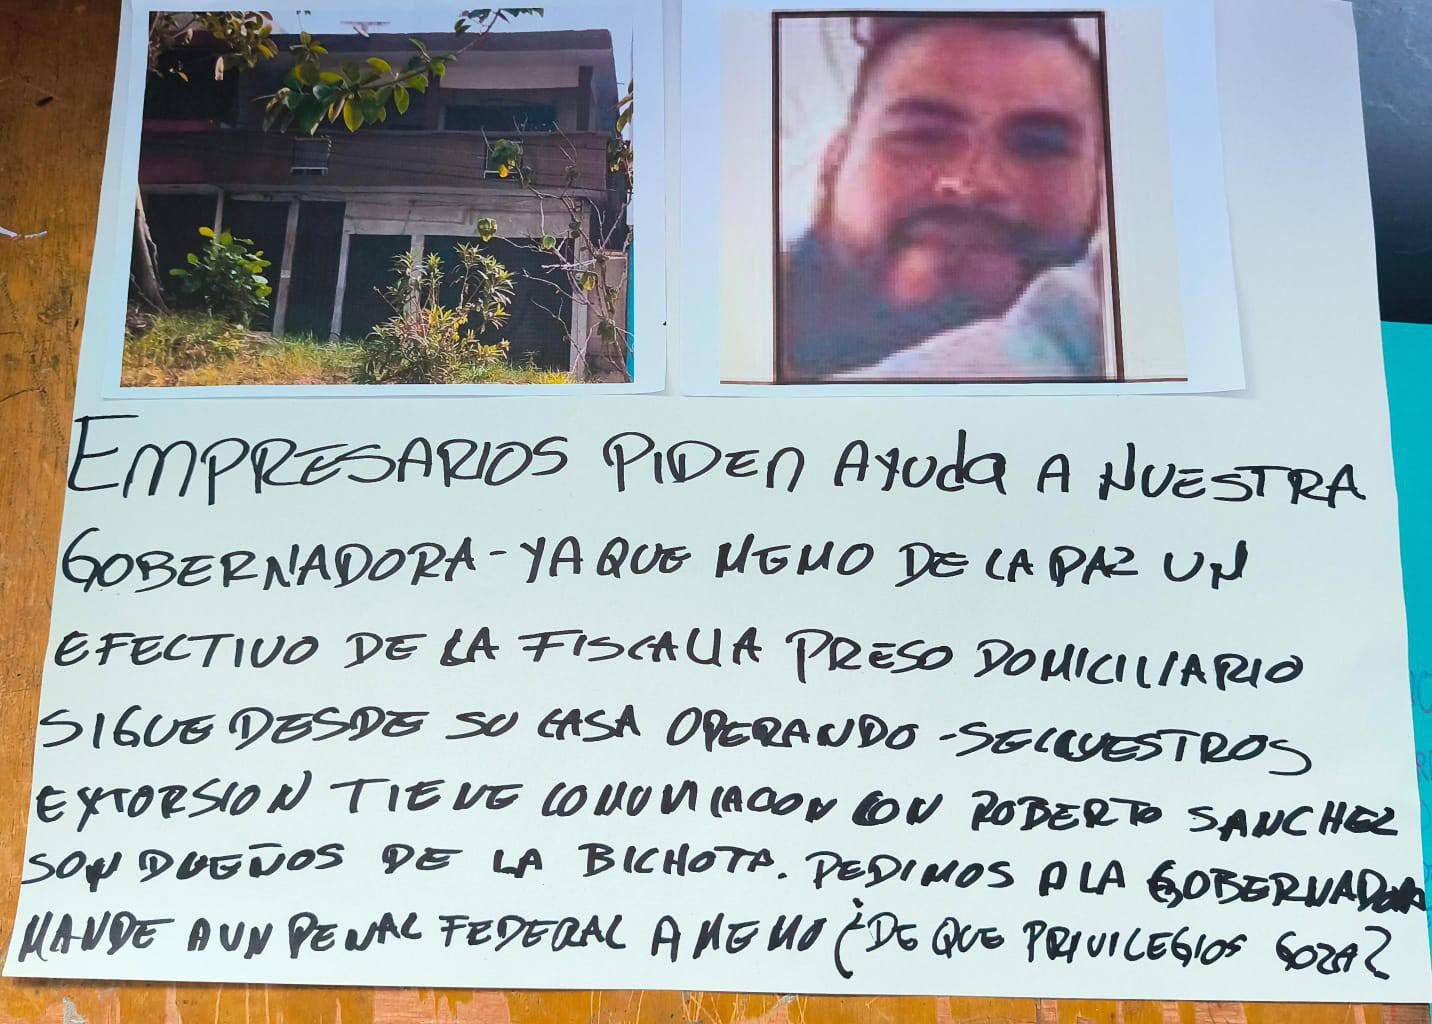 EMPRESARIOS PIDEN AYUdA A NUESTRA
GOBERNADORA - YA QUE MEMO DE LA PAZ UN
EFECTIVO DE LA FISCALIA PRESO DOMICILIARIO
SIGUE DESDE SU CASA OPERANDO - SECUESTROS
EXTORSION TIENE COMUNICACON CON ROBERTO SANCHEZ
SON DUEÑOS DE LA BICHOTA. PEDIMOS A LA GOBERNADORA
MANDE A UN PENAL FEDERAL A MEMO ¿DE QUE PRIVILEGIOS GOZA?